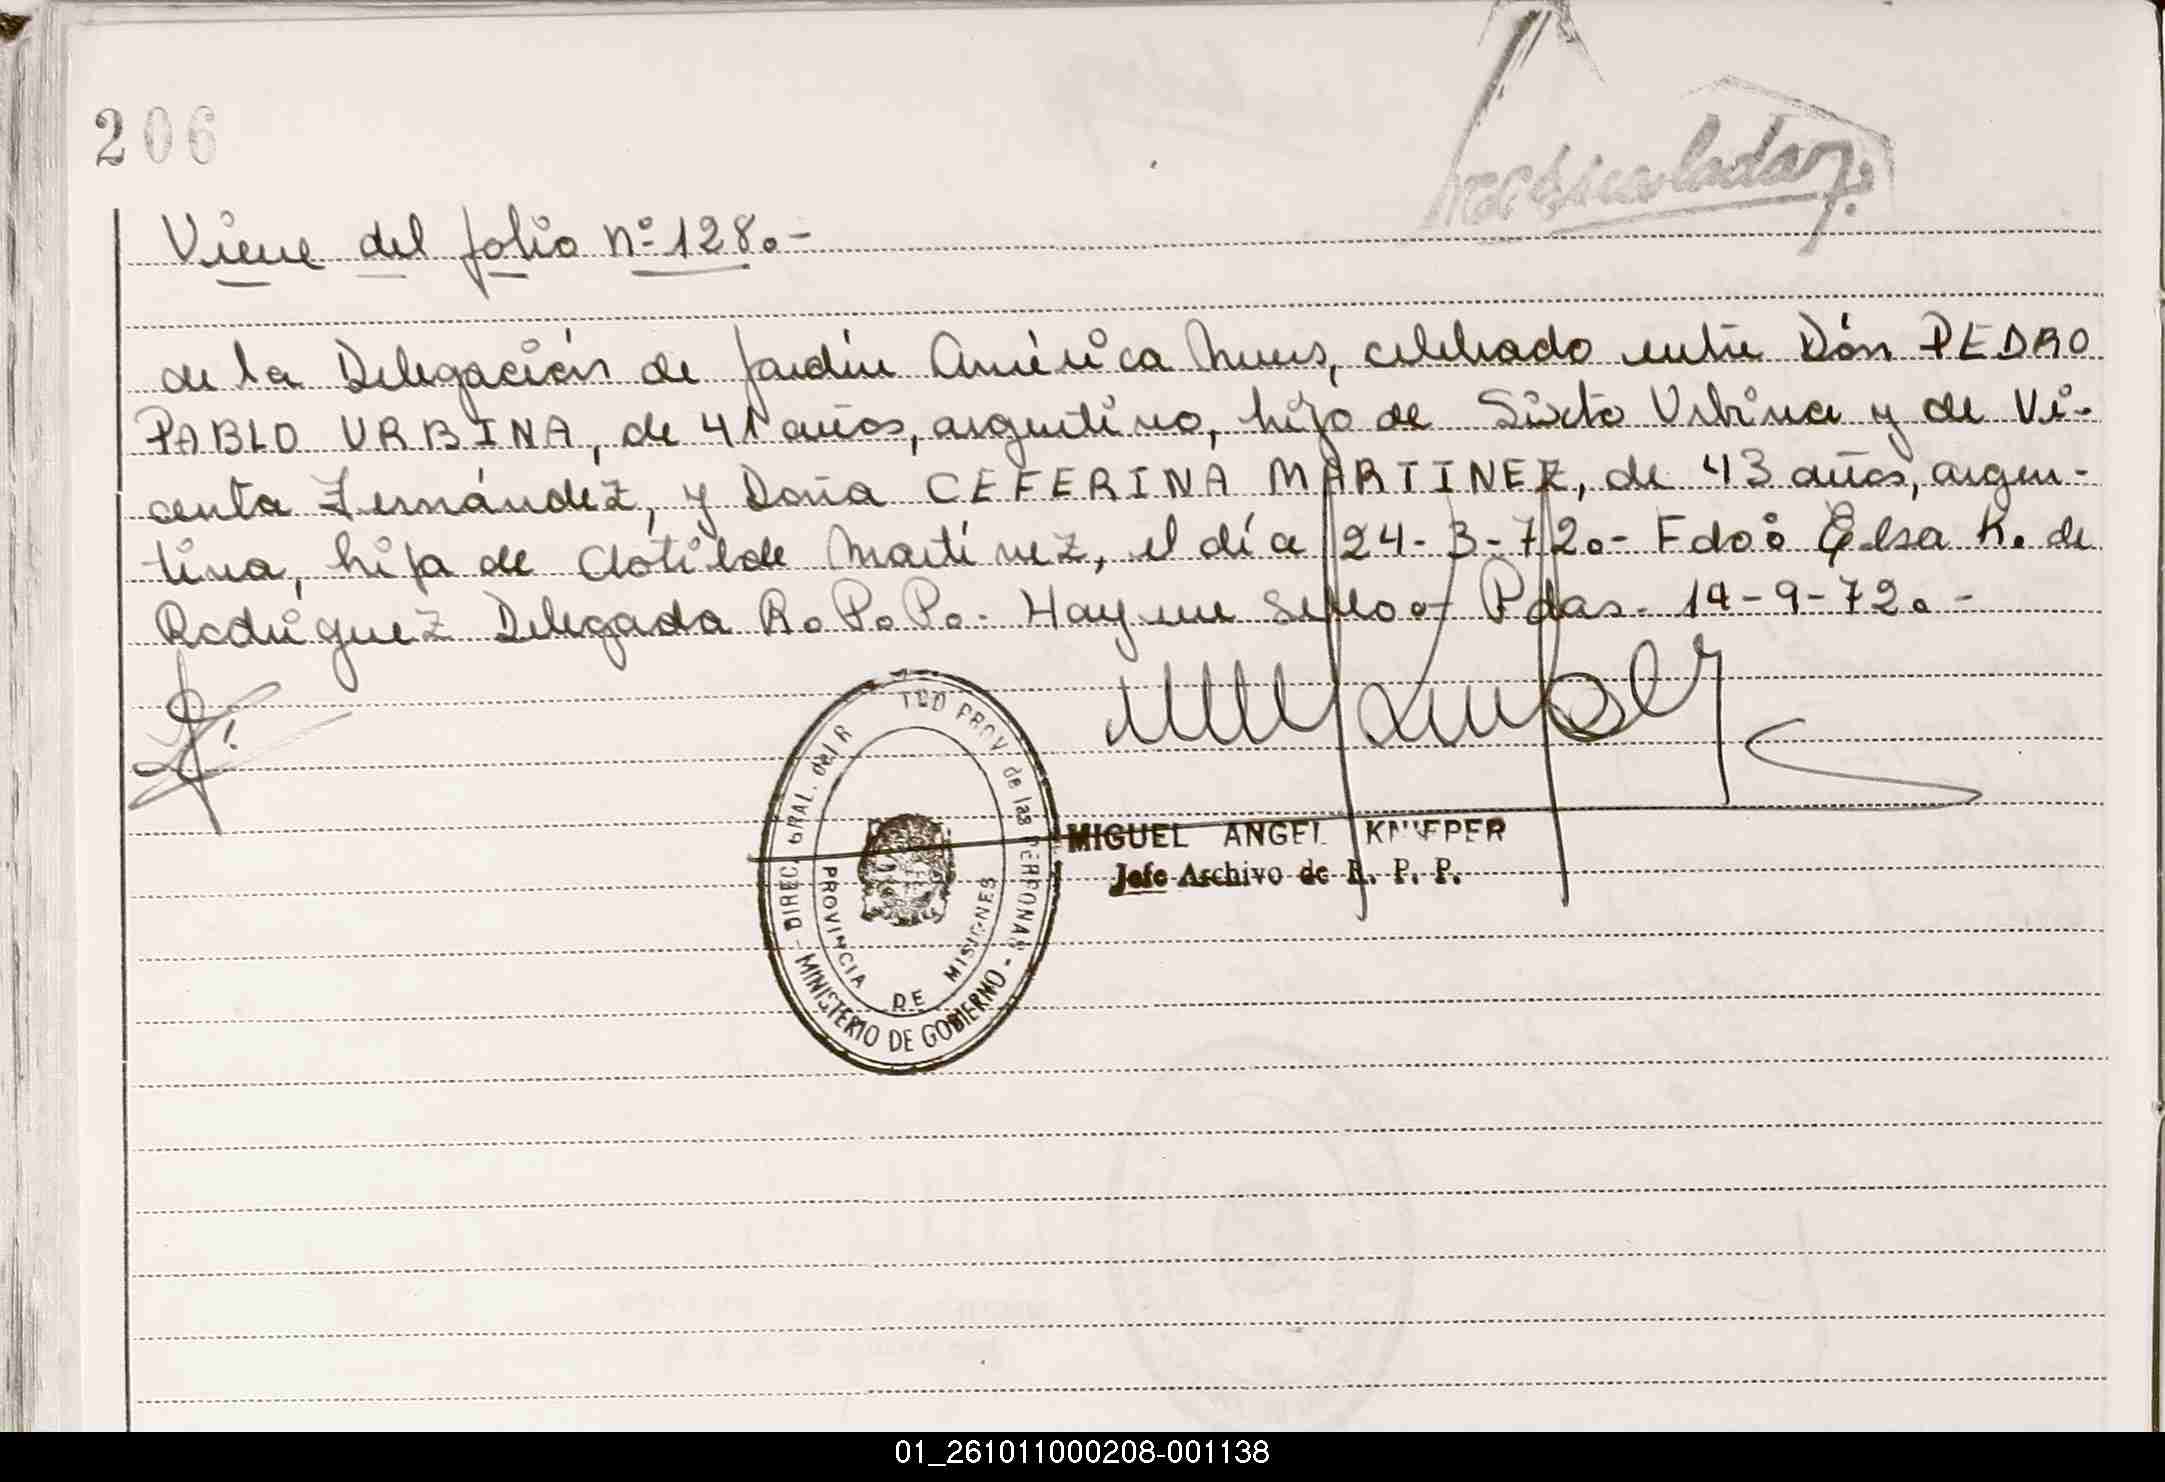 206
Viene del folio Nº 128.-
de la Delegación de Jardín América Mnes, celebrado entre Dón PEDRO
PABLO URBINA, de 41 años, argentino, hijo de Sixto Urbina y de Vi-
centa Fernández, y Doña CEFERINA MARTINEZ, de 43 años, argen-
tina, hija de Clotilde Martínez, el día 24-3-72.- Fdo: Elsa R. de
Rodríguez Delegada R.P.P.- Hay un sello.- Pdas. 14-9-72.-
DIREC. GRAL. del R TRO PROV de las PERSONAS
PROVINCIA DE MISIONES
- MINISTERIO DE GOBIERNO -
MIGUEL ANGEL KNEEPER
Jefe Archivo de R. P. P.
01_261011000208-001138